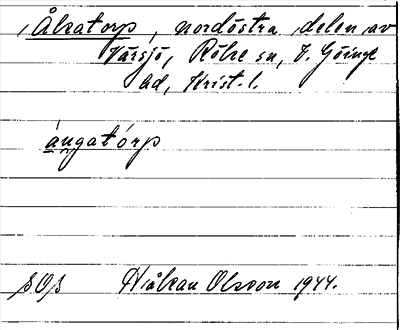 Åkatorp, nordöstra delen av
Värsjö, Röke sn, V. Göinge
hd, Krist. l.
ångatórp
SOS Håkan Olsson 1944.